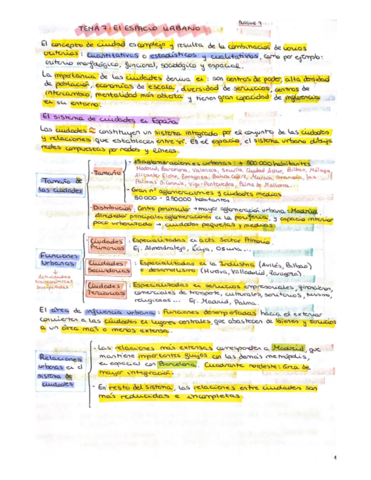 BLOQUE 9
TEMA 7: El ESPACIO URBANO
El concepto de ciudad es complejo y resulta de la combinación de varios
criterios: cuantitativos o estadísticos y cualitativos, como por ejemplo:
criterio morfológico, funcional, sociológico y espacial.
La importancia de las ciudades deriva en: son centros de poder, alta densidad
de población, economías de escala, diversidad de servicios, centros de
intercambio, mentalidad más abierta y tienen gran capacidad de influencia
en su entorno.
El sistema de ciudades en España
Las ciudades constituyen un sistema integrado por el conjunto de las ciudades
y relaciones que establecen entre sí. Es el espacio, el sistema urbano dibuja
redes compuestas por nodos y líneas.
Tamaño de las ciudades
Tamaño
Aglomeraciones urbanas: + 300.000 habitantes
Madrid, Barcelona, Valencia, Sevilla, Ciudad Astur, Bilbao, Málaga,
Alicante Elche, Zaragoza, Bahía Cádiz, Murcia, Granada, Las
Palmas G. Canaria, Vigo-Pontevedra, Palma de Mallorca.
Gran nº aglomeraciones y ciudades medias
50.000 - 250.000 habitantes
Distribución
Centro peninsular → mayor aglomeración urbana: Madrid
principales aglomeraciones en la periferia, y espacio interior
poco urbanizado → ciudades pequeñas y medias.
Funciones Urbanas
↓
Actividades
Ciudades Primarias
: Especializadas en acts. Sector Primario.
Ej: Almendralejo, Écija, Osuna...
Ciudades Secundarias
: Especializadas en la Industria (Avilés, Bilbao)
o desarrollismo (Huelva, Valladolid, Zaragoza)
Ciudades Terciarias
: Especializadas en servicios empresariales, financieros,
comerciales, de transporte, culturales, sanitarios,
religiosos... Ej: Madrid, Palma.
El área de influencia urbana: Funciones desempeñadas hacia el exterior
convierten a las ciudades en lugares centrales, que abastecen de bienes y servicios
a un área más o menos extensa.
Relaciones urbanas en el sistema de ciudades
- Las relaciones más extensas corresponden a Madrid, que
mantiene importantes flujos con las demás metrópolis,
en especial con Barcelona. Cuadrante nordeste: área de
mayor integración.
- En resto del sistema, las relaciones entre ciudades son
más reducidas e incompletas.
1